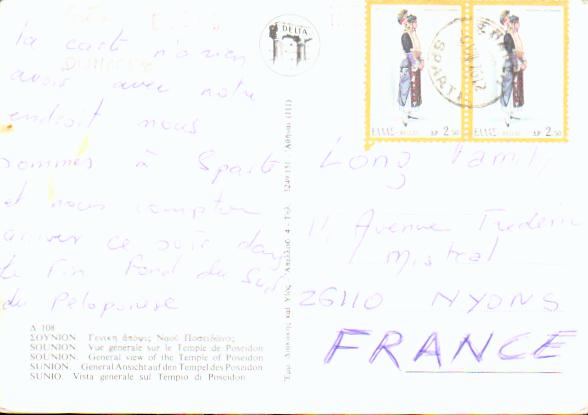 la carte n'a rien
avoir avec notre
endroit nous
sommes à Sparte
et nous comptons
arriver ce soir dans
le fin fond du Sud
du Peloponese
Δ-108
ΣΟΥΝΙΟΝ. Γενική άποψις Ναού Ποσειδώνος
SOUNION. Vue generale sur le Temple de Poseidon
SOUNION. General view of the Temple of Poseidon
SUNION. General Ansicht auf den Tempel des Poseidon
SUNIO. Vista generale sul Tempio di Poseidon
DELTA
3249151 Αθήναι (111)
ΕΛΛΑΣ HELLAS ΔΡ. 2.50
ΕΛΛΑΣ HELLAS ΔΡ. 2.50
SPARTI
Long Family
11, Avenue Frederic
Mistral
26110 NYONS
FRANCE